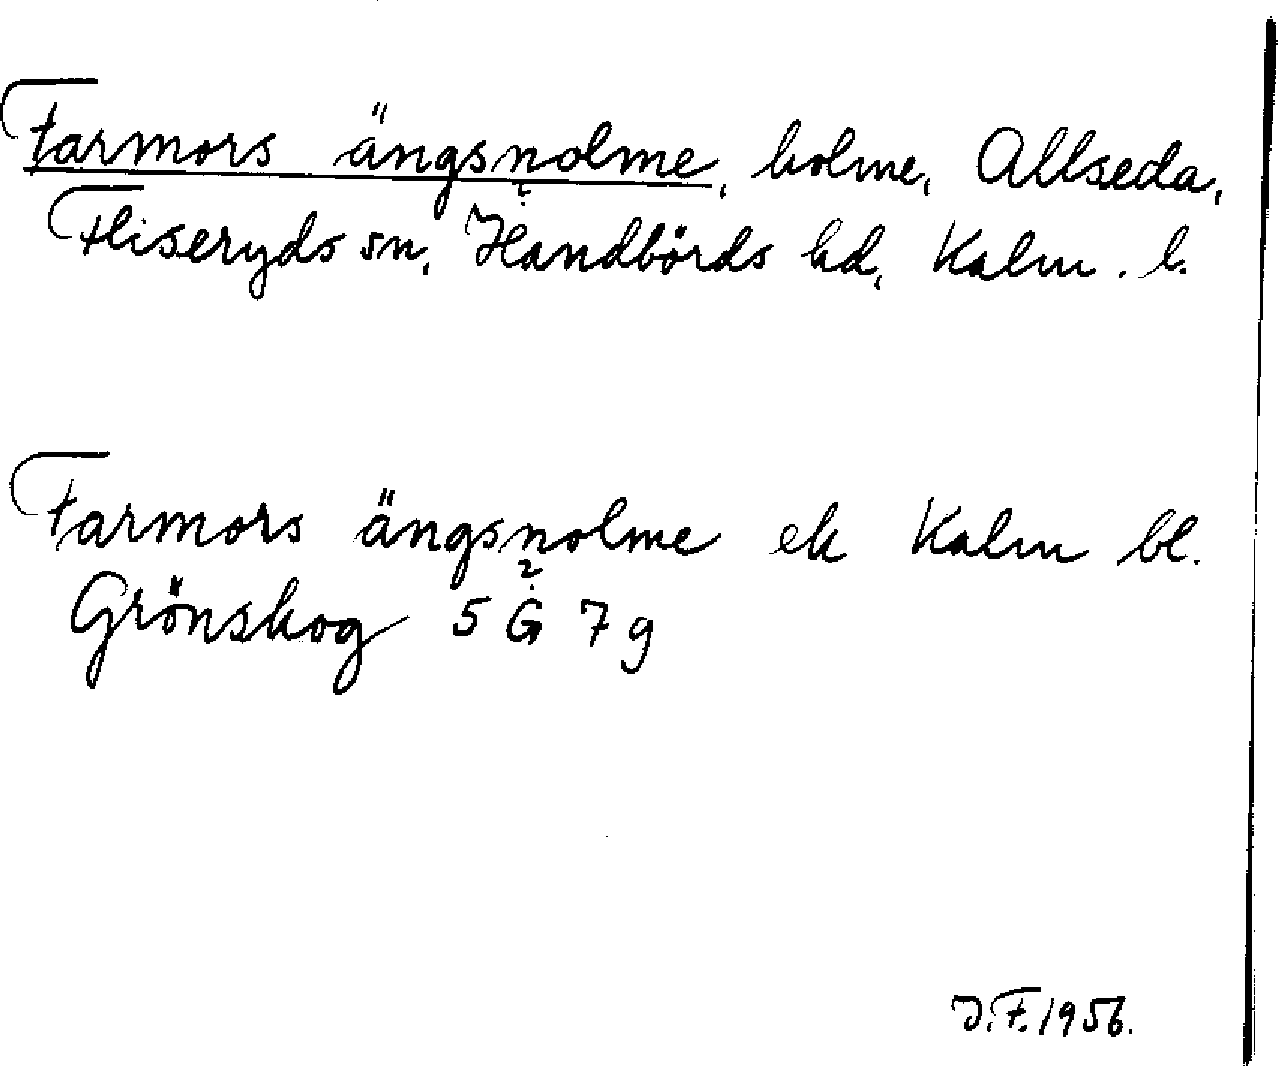 Farmors ängsnolme, holme, Allseda,
?
Fliseryds sn, Handbörds hd, Kalm. l.
Farmors ängsnolme ek Kalm bl.
?
Grönskog 5 G 7 g
J.F. 1956.